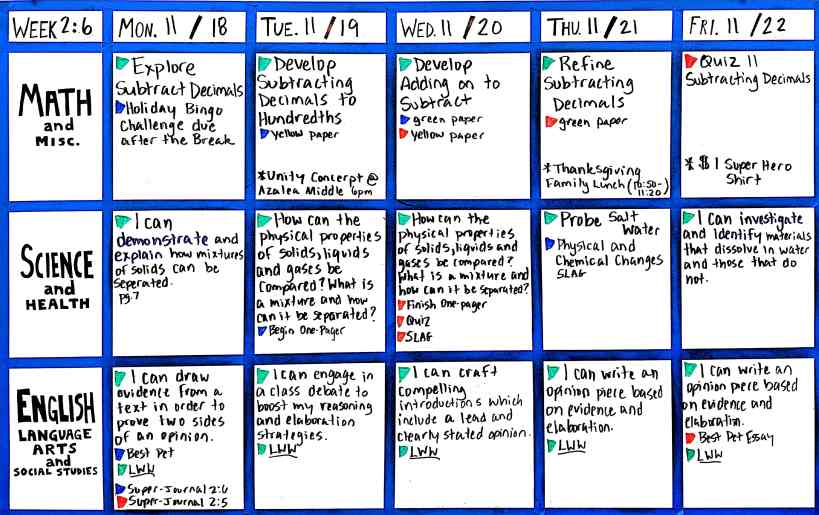 WEEK 2:6
MON. 11 / 18
TUE. 11 / 19
WED. 11 / 20
THU. 11 / 21
FRI. 11 / 22
MATH
and
MISC.
Explore
Subtract Decimals
Holiday Bingo
Challenge due
after the Break
Develop
Subtracting
Decimals to
Hundredths
yellow paper
*Unity Concert @
Azalea Middle 6pm
Develop
Adding on to
Subtract
green paper
yellow paper
Refine
Subtracting
Decimals
green paper
*Thanksgiving
Family Lunch (10:50-
11:20
Quiz 11
Subtracting Decimals
* $1 Super Hero
Shirt
SCIENCE
and
HEALTH
I can
demonstrate and
explain how mixtures
of solids can be
seperated.
pg. 7
How can the
physical properties
of solids, liquids
and gases be
compared? What is
a mixture and how
can it be separated?
Begin One-Pager
How can the
physical properties
of solids, liquids and
gases be compared?
What is a mixture and
how can it be separated?
Finish One-pager
Quiz
SLAG
Probe Salt
Water
Physical and
Chemical Changes
SLAG
I can investigate
and identify materials
that dissolve in water
and those that do
not.
ENGLISH
LANGUAGE
ARTS
and
SOCIAL STUDIES
I can draw
evidence from a
text in order to
prove two sides
of an opinion.
Best Pet
LWW
Super-Journal 2:6
Super-Journal 2:5
I can engage in
a class debate to
boost my reasoning
and elaboration
strategies.
LWW
I can craft
compelling
introductions which
include a lead and
clearly stated opinion.
LWW
I can write an
opinion piece based
on evidence and
elaboration.
LWW
I can write an
opinion piece based
on evidence and
elaboration.
Best Pet Essay
LWW